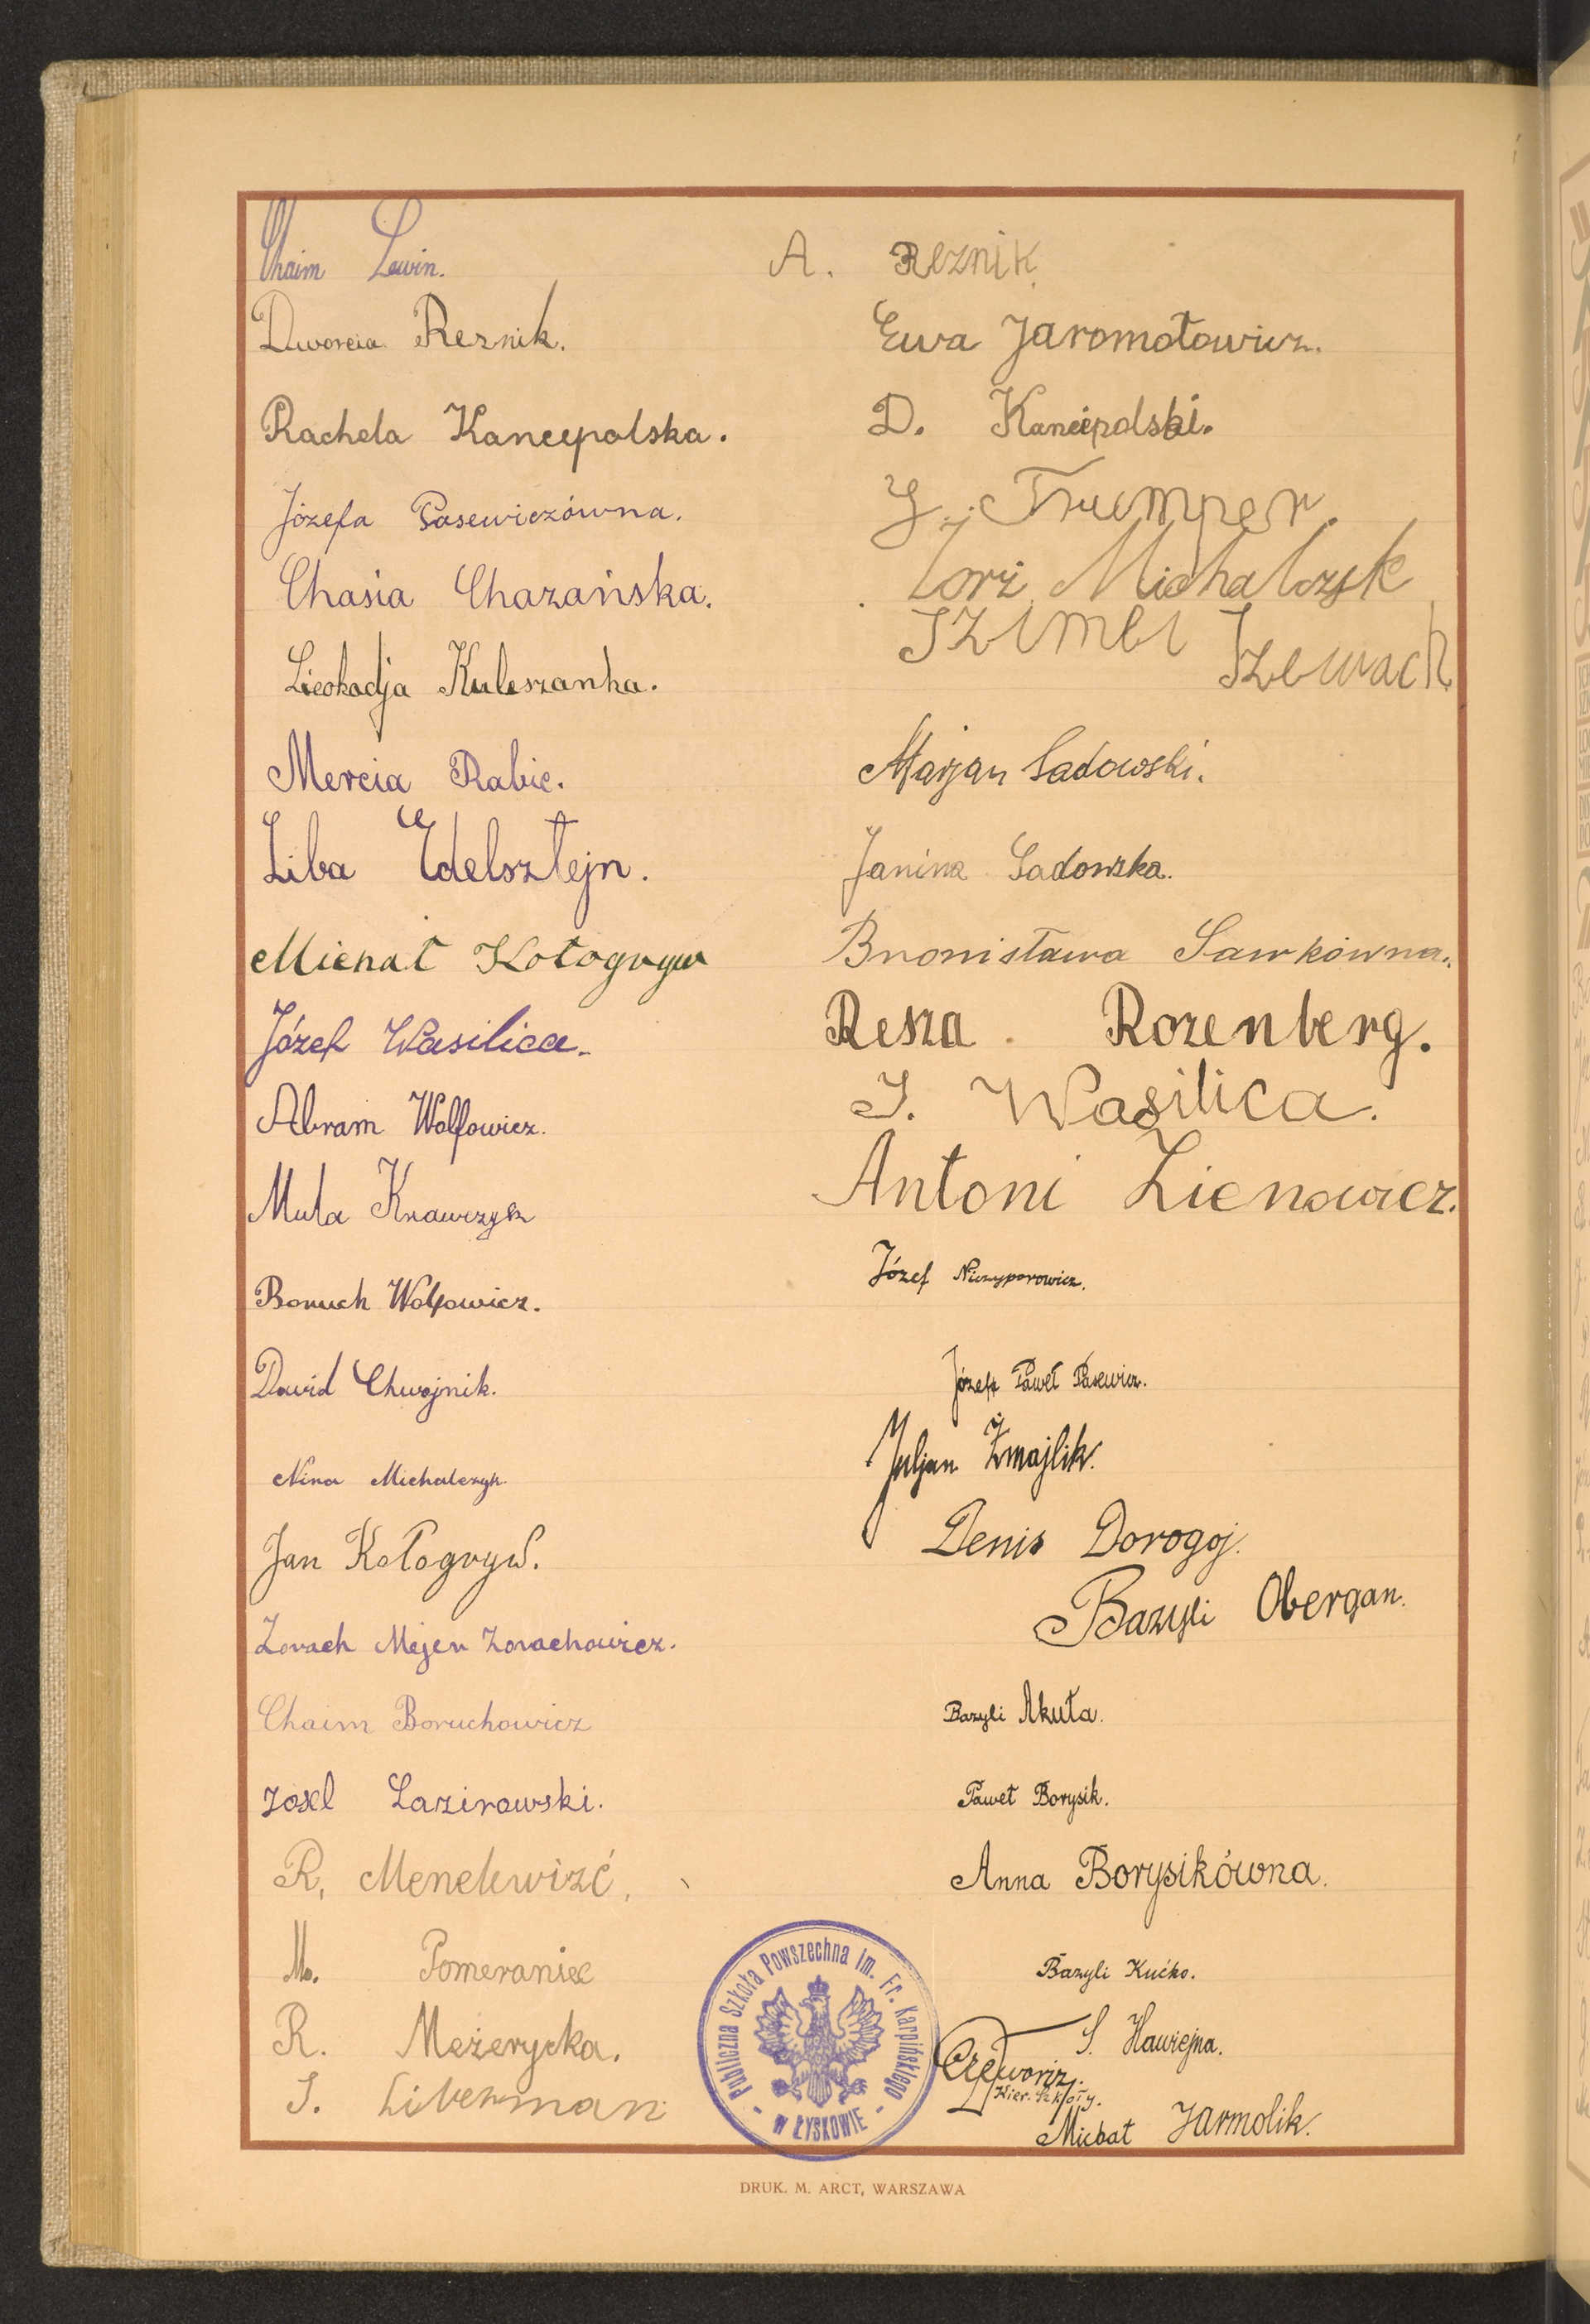 Chaim Lewin.
Dworcia Reznik.
Rachela Kancepolska.
Józefa Pasewiczówna.
Chasia Chazańska.
Lieokadja Kuleszanka.
Mercia Rabic.
Liba Edelsztejn.
Michał Kołogryw
Józef Wasilica.
Abram Wolfowicz.
Mula Krawczyk
Boruch Wolfowicz.
Dawid Chwojnik.
Nina Michalczyk.
Jan Kołogryw.
Zorach Mejer Zorachowicz.
Chaim Boruchowicz
Josel Lazirowski.
R. Menelewizć.
M. Pomeraniec
R. Meżerycka.
S. Liberman
A. Reznik.
Ewa Jaromołowicz.
D. Kanciepolski.
J. Trumper.
Michalczyk
Szimel Szewach
Marjan Sadowski.
Janina Sadowska.
Bronisława Sawkówna.
Resza Rozenberg.
J. Wasilica.
Antoni Zienowicz.
Józef Niczyporowicz.
Józef Paweł Pasewicz.
Juljan Żmajlik.
Denis Dorogoj.
Bazyli Obergan.
Bazyli Akuła.
Paweł Borysik.
Anna Borysikówna.
Bazyli Kućko.
S. Hawrejna.
Kier. Szkoły.
Michał Jarmolik.
Publiczna Szkoła Powszechna im. Fr. Karpińskiego
W ŁYSKOWIE
DRUK. M. ARCT, WARSZAWA